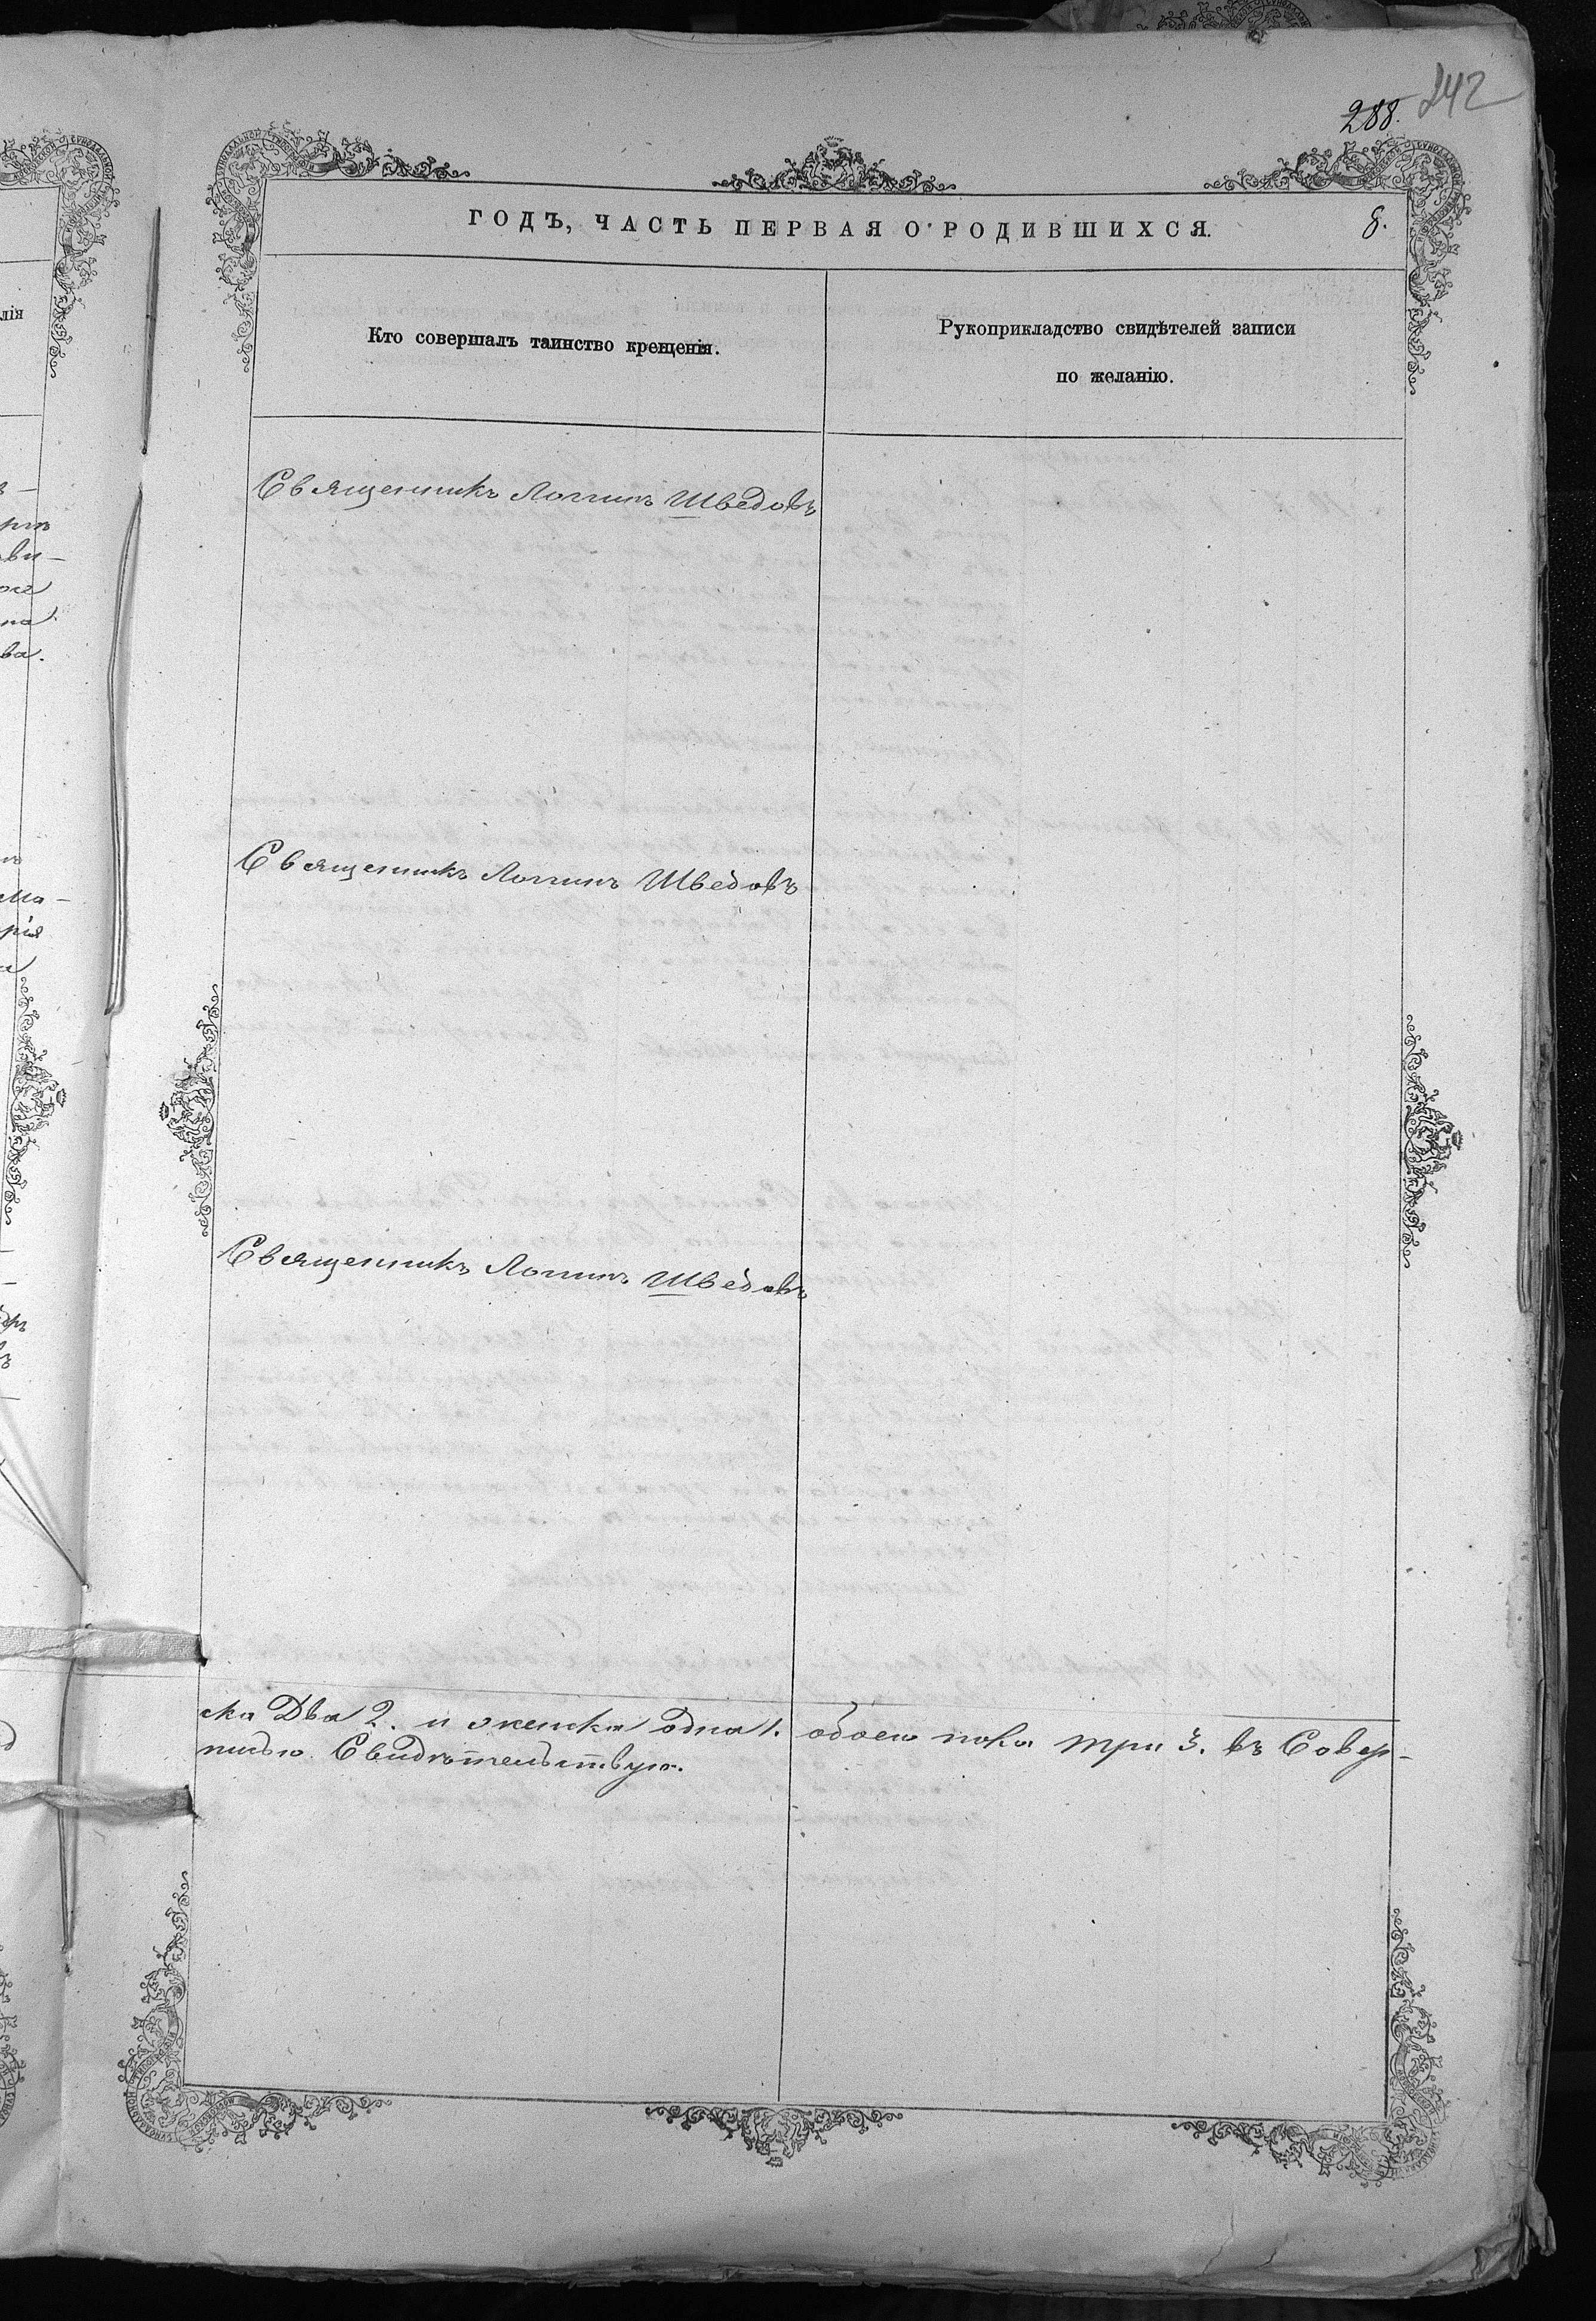 242
288.
ГОДЪ, ЧАСТЬ ПЕРВАЯ О РОДИВШИХСЯ.
8.
лія
Кто совершалъ таинство крещенія.
Рукоприкладство свидѣтелей записи
по желанію.
Священникъ Логгинъ Шведовъ
ви-
ва.
Священникъ Логгинъ Шведовъ
рія
Священникъ Логгинъ Шведовъ
ска Два 2. и женска одна 1. обоего пола три 3. въ Совер-
писью Свидѣтельствую.